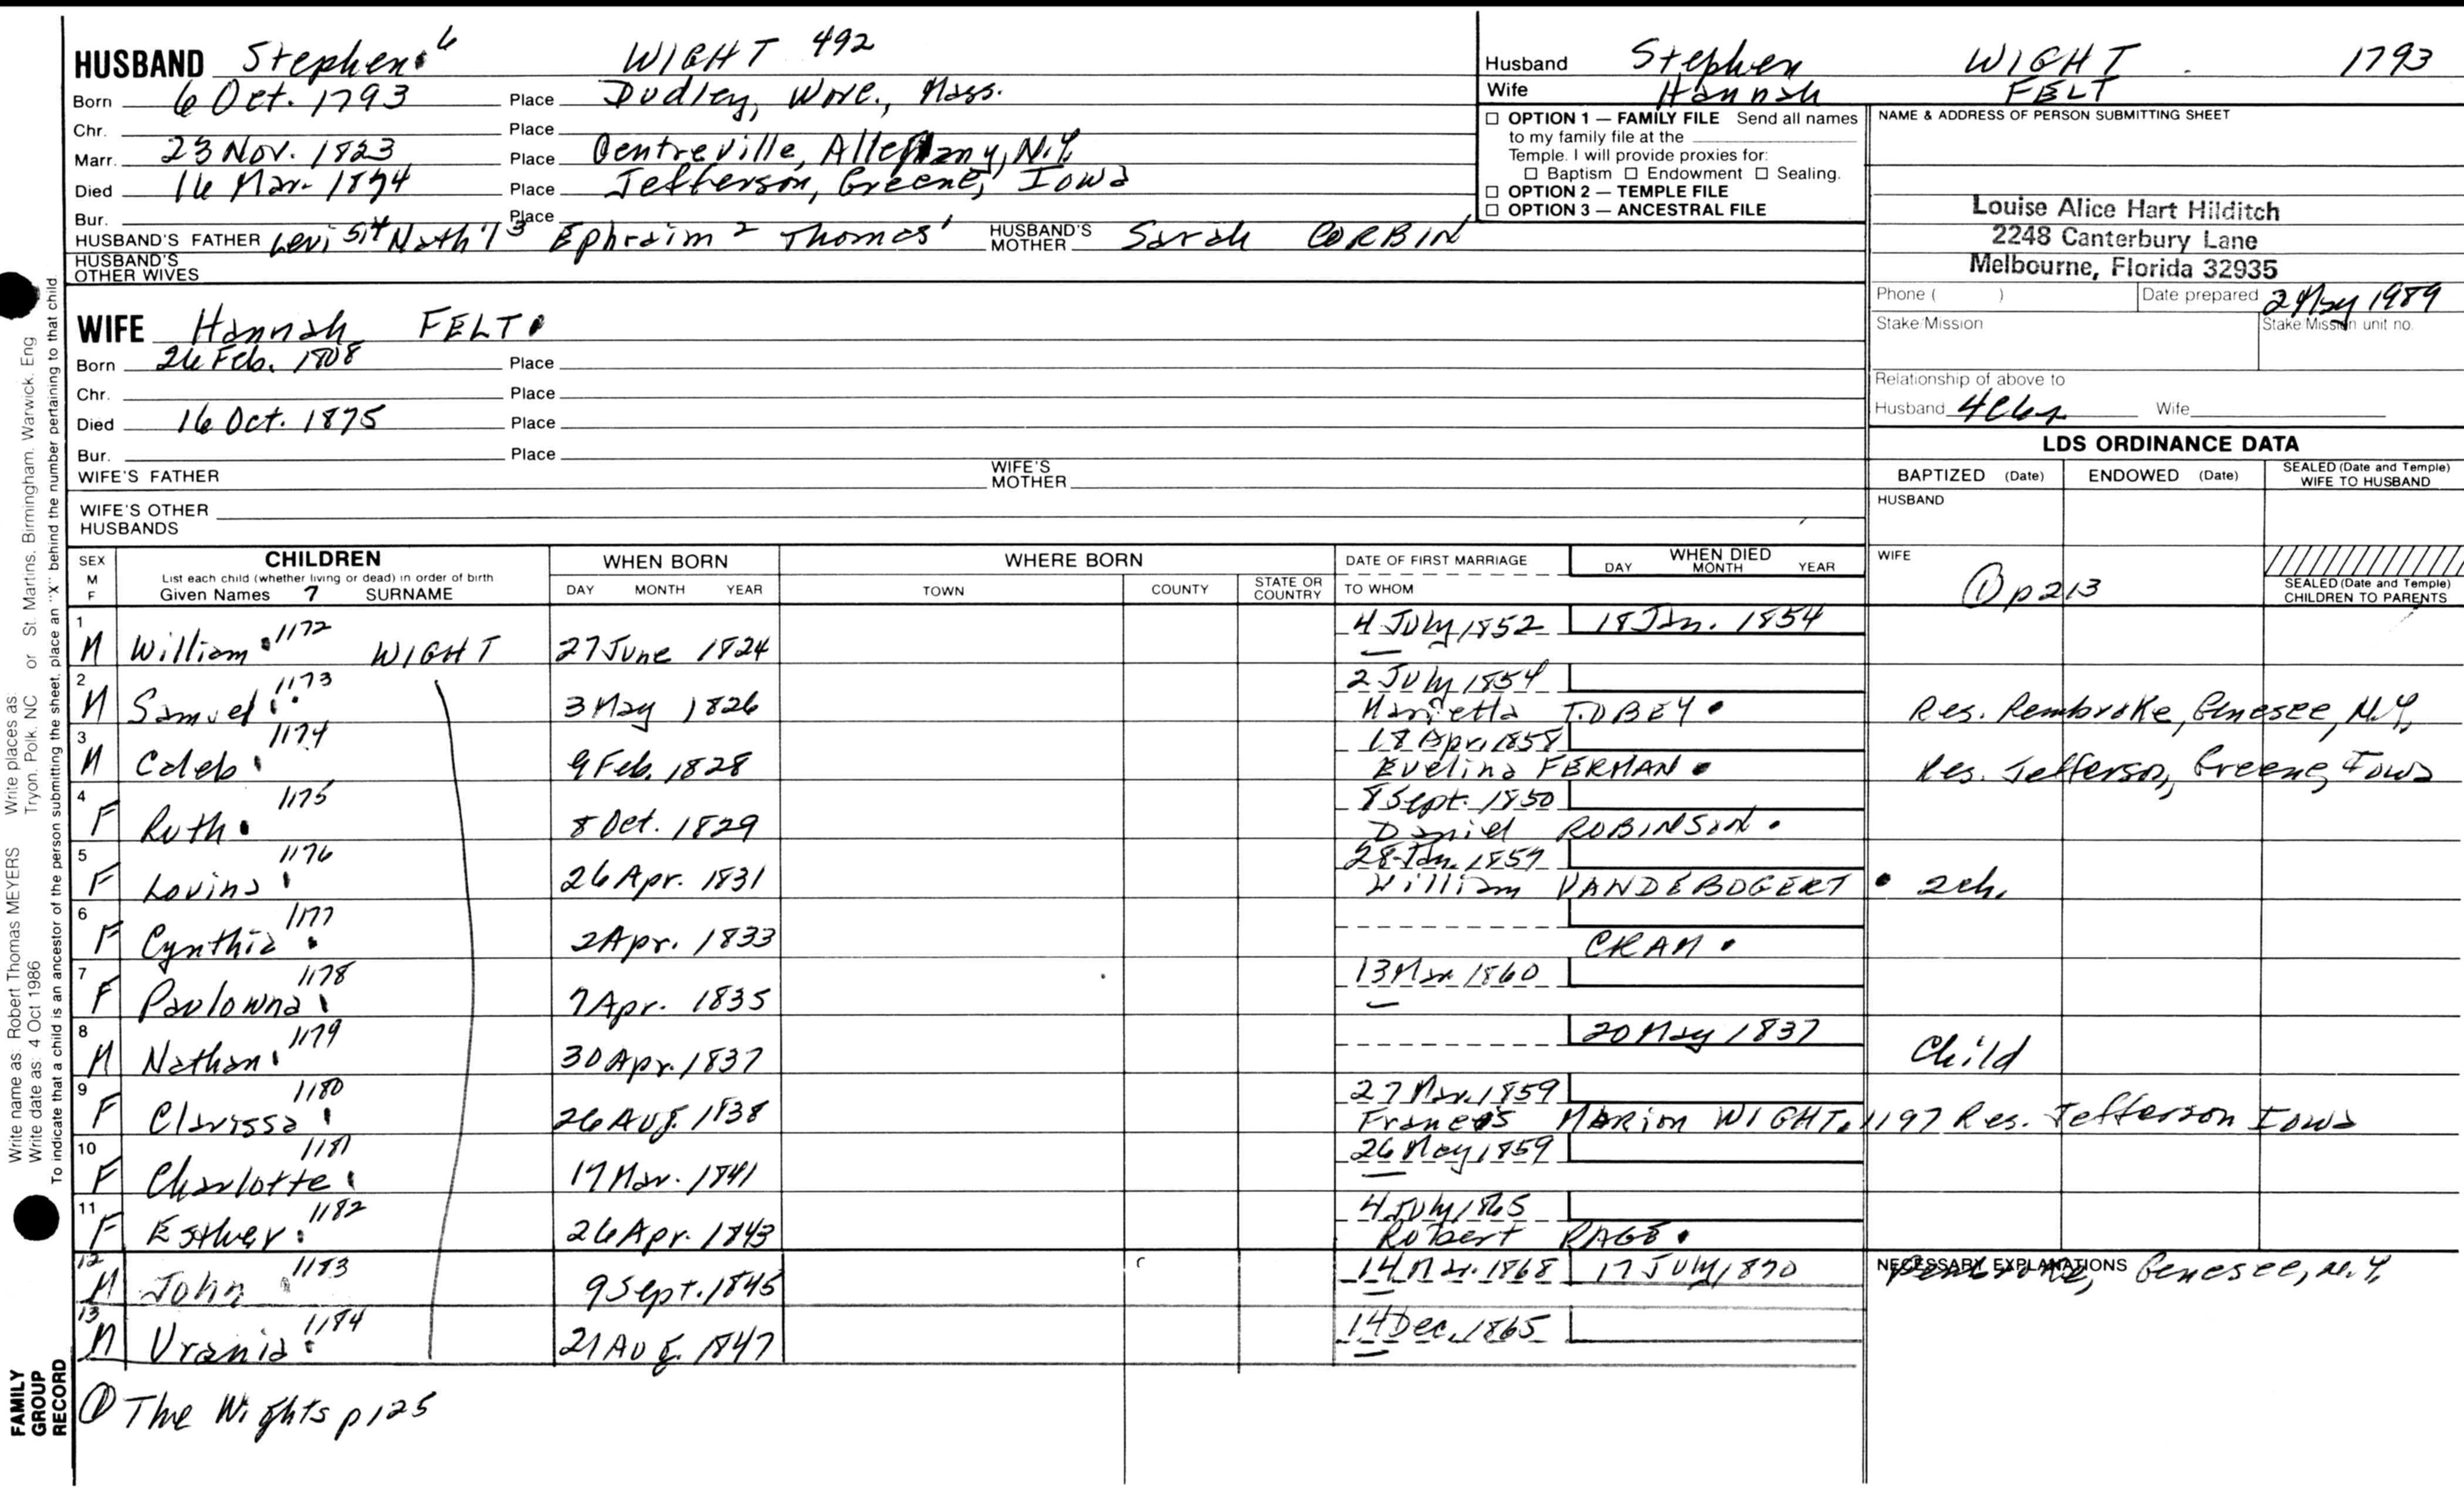 HUSBAND Stephen 6 WIGHT 492
Born 6 Oct. 1793 Place Dudley, Worc., Mass.
Chr. Place
Marr. 23 Nov. 1823 Place Centreville, Allegany, N.Y.
Died 16 Mar. 1874 Place Jefferson, Greene, Iowa
Bur. Place
HUSBAND'S FATHER Levi 5,4 Nath'l 3 Ephraim 2 Thomas 1 HUSBAND'S MOTHER Sarah CORBIN
HUSBAND'S OTHER WIVES
Husband Stephen WIGHT 1793
Wife Hannah FELT
☐ OPTION 1 — FAMILY FILE Send all names
to my family file at the
Temple. I will provide proxies for:
☐ Baptism ☐ Endowment ☐ Sealing.
☐ OPTION 2 — TEMPLE FILE
☐ OPTION 3 — ANCESTRAL FILE
NAME & ADDRESS OF PERSON SUBMITTING SHEET
Louise Alice Hart Hilditch
2248 Canterbury Lane
Melbourne, Florida 32935
Phone ( ) Date prepared 2 May 1989
Stake/Mission Stake Mission unit no.
Relationship of above to
Husband Wife
WIFE Hannah FELT
Born 26 Feb. 1808 Place
Chr. Place
Died 16 Oct. 1875 Place
Bur. Place
WIFE'S FATHER WIFE'S MOTHER
WIFE'S OTHER HUSBANDS
LDS ORDINANCE DATA
BAPTIZED (Date) ENDOWED (Date) SEALED (Date and Temple) WIFE TO HUSBAND
HUSBAND
WIFE
① p213
SEALED (Date and Temple) CHILDREN TO PARENTS
SEX M F CHILDREN WHEN BORN WHERE BORN DATE OF FIRST MARRIAGE WHEN DIED
List each child (whether living or dead) in order of birth
Given Names 7 SURNAME DAY MONTH YEAR TOWN COUNTY STATE OR COUNTRY TO WHOM DAY MONTH YEAR
1 M William 1172 WIGHT 27 June 1824 4 July 1852 18 Jan. 1854
2 M Samuel 1173 3 May 1826 2 July 1854
Marietta TOBEY Res. Pembroke, Genesee, N.Y.
3 M Caleb 1174 9 Feb. 1828 18 Apr. 1858
Evelina FERMAN Res. Jefferson, Greene, Iowa
4 F Ruth 1175 8 Oct. 1829 8 Sept. 1850
Daniel ROBINSON
5 F Lovina 1176 26 Apr. 1831 28 Jan. 1857
William VANDEBOGERT 2 ch.
6 F Cynthia 1177 2 Apr. 1833
CRAM
7 F Paulowna 1178 7 Apr. 1835 13 Mar. 1860
8 M Nathan 1179 30 Apr. 1837 20 May 1837
Child
9 F Clarissa 1180 26 Aug. 1838 27 Mar. 1859
Francis MARION WIGHT 1197 Res. Jefferson Iowa
10 F Charlotte 1181 17 Mar. 1841 26 May 1859
11 F Esther 1182 26 Apr. 1843 4 July 1865
Robert PAGE
12 M John 1183 9 Sept. 1845 14 Mar. 1868 17 July 1870
NECESSARY EXPLANATIONS
Pembroke, Genesee, N.Y.
13 M Urania 1184 21 Aug. 1847 14 Dec. 1865
① The Wights p 125
Write name as: Robert Thomas MEYERS Write places as: Tryon, Polk, NC or St. Martins, Birmingham, Warwick, Eng
Write date as: 4 Oct 1986
To indicate that a child is an ancestor of the person submitting the sheet, place an "X" behind the number pertaining to that child
FAMILY GROUP RECORD